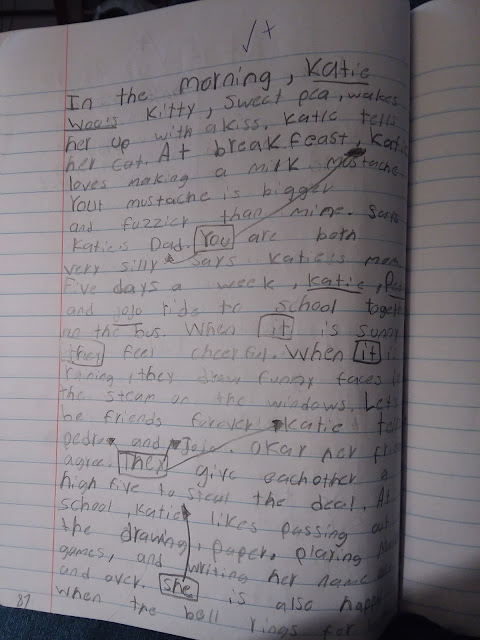 √+
In the morning, Katie
Woo's Kitty, Sweet pea, wakes
her up with a kiss. Katie tells
her cat. At breakfeast, Katie
loves making a milk mustache.
Your mustache is bigger
and fuzzier than mine. Says
Katie's Dad. You are both
very silly says Katie's mom
Five days a week, Katie,
and Jojo ride to school togeth
on the bus. When it is sunny
they feel cheerful. When it is
raining, they draw funny faces i
the steam on the windows. Lets
be friends forever Katie tell
pedro and Jojo. Okay her fri
agree. They give eachother a
high five to steal the deal. At
school, Katie likes passing out
the drawing, paper, playing
games, and writing her name
and over. she is also happ
87 when the bell rings for